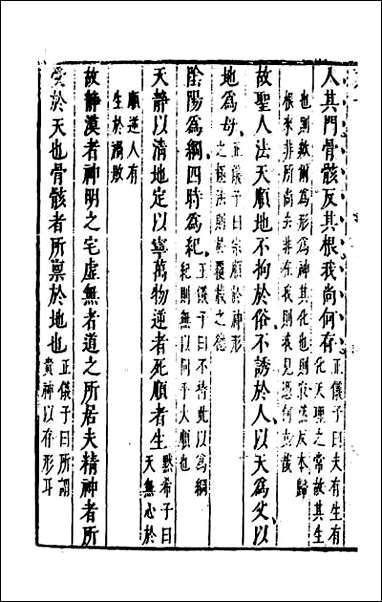 入其門骨骸反其根我尚何存正儀子曰夫有生有
化天理之常故其生
也則歘爾爲形神其化也則寂然反本歸
根來非所尚去非在我則衰見憑何立哉
故聖人法天順地不拘於俗不誘於人以天爲父以
地爲母正儀子曰宗順於神形
之樞法則於覆載之德
陰陽爲綱四時爲紀正儀子曰不持此以爲綱
紀則無以同乎大順也
天静以清地定以寧萬物逆者死順者生默希子曰
天無心於
順逆人有
生於禍敗
故静漠者神明之宅虛無者道之所居夫精神者所
受於天也骨骸者所禀於地也正儀子曰所謂
貴神以存形耳